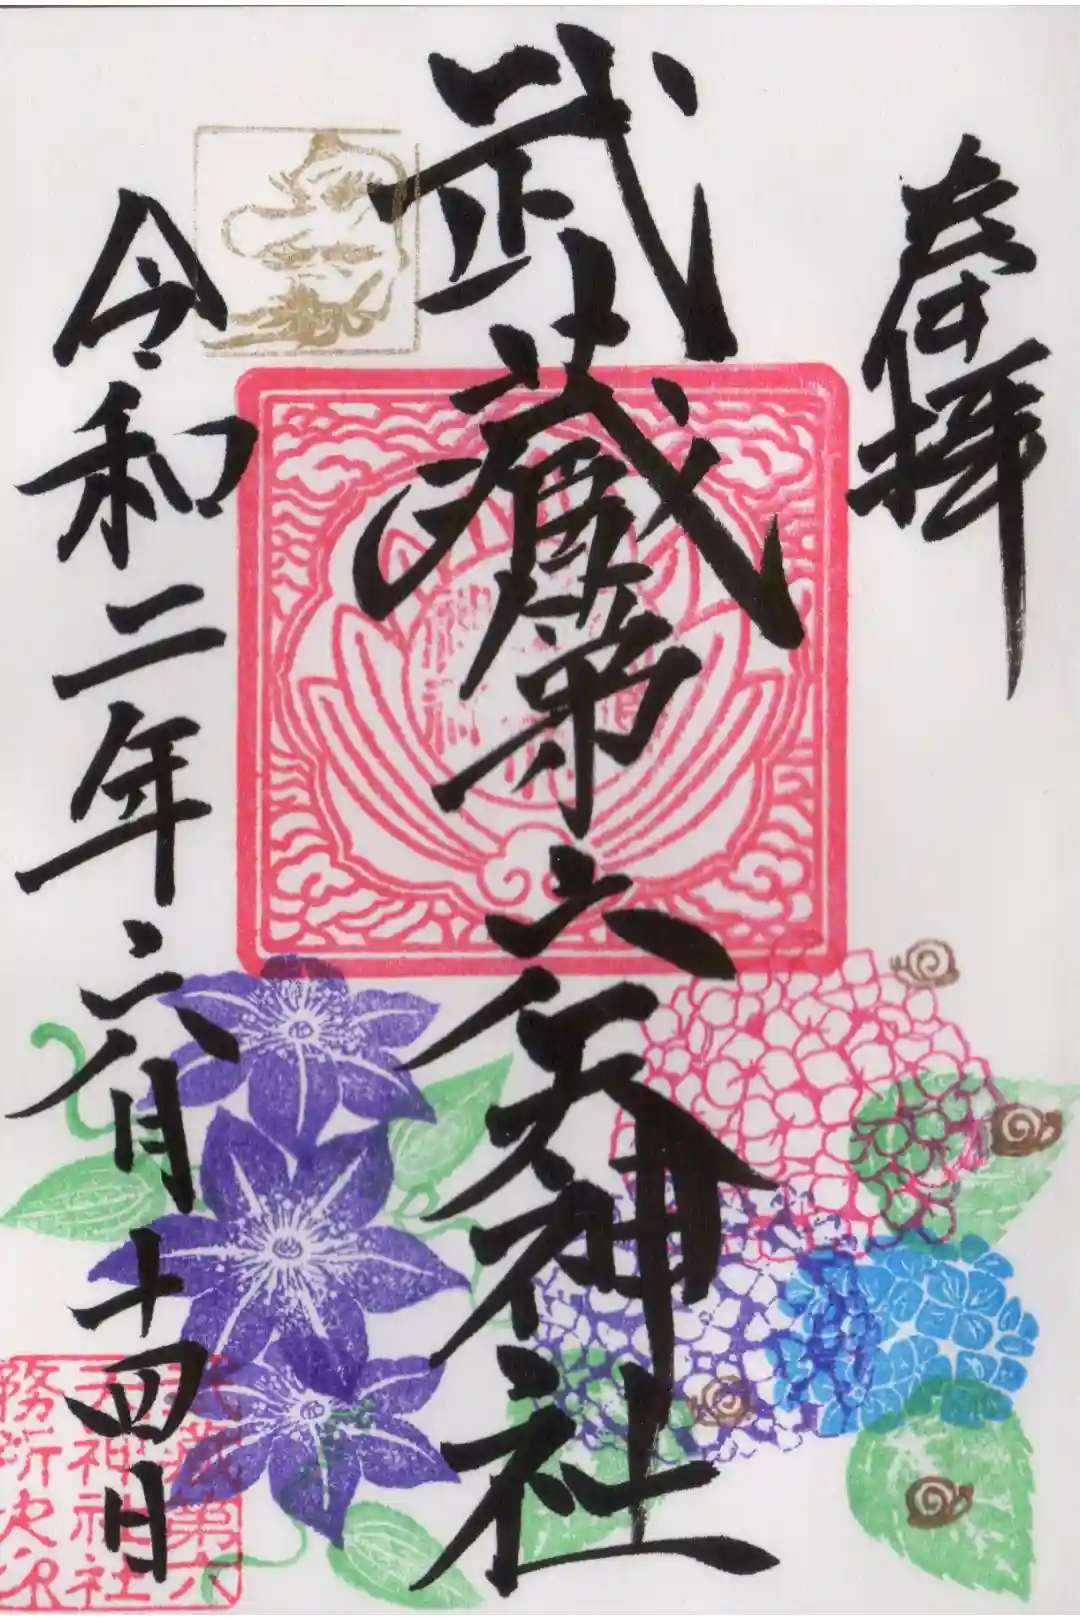 奉拝
武蔵第六天神社
令和二年六月十四日
武蔵第六
天神社社
務所之印